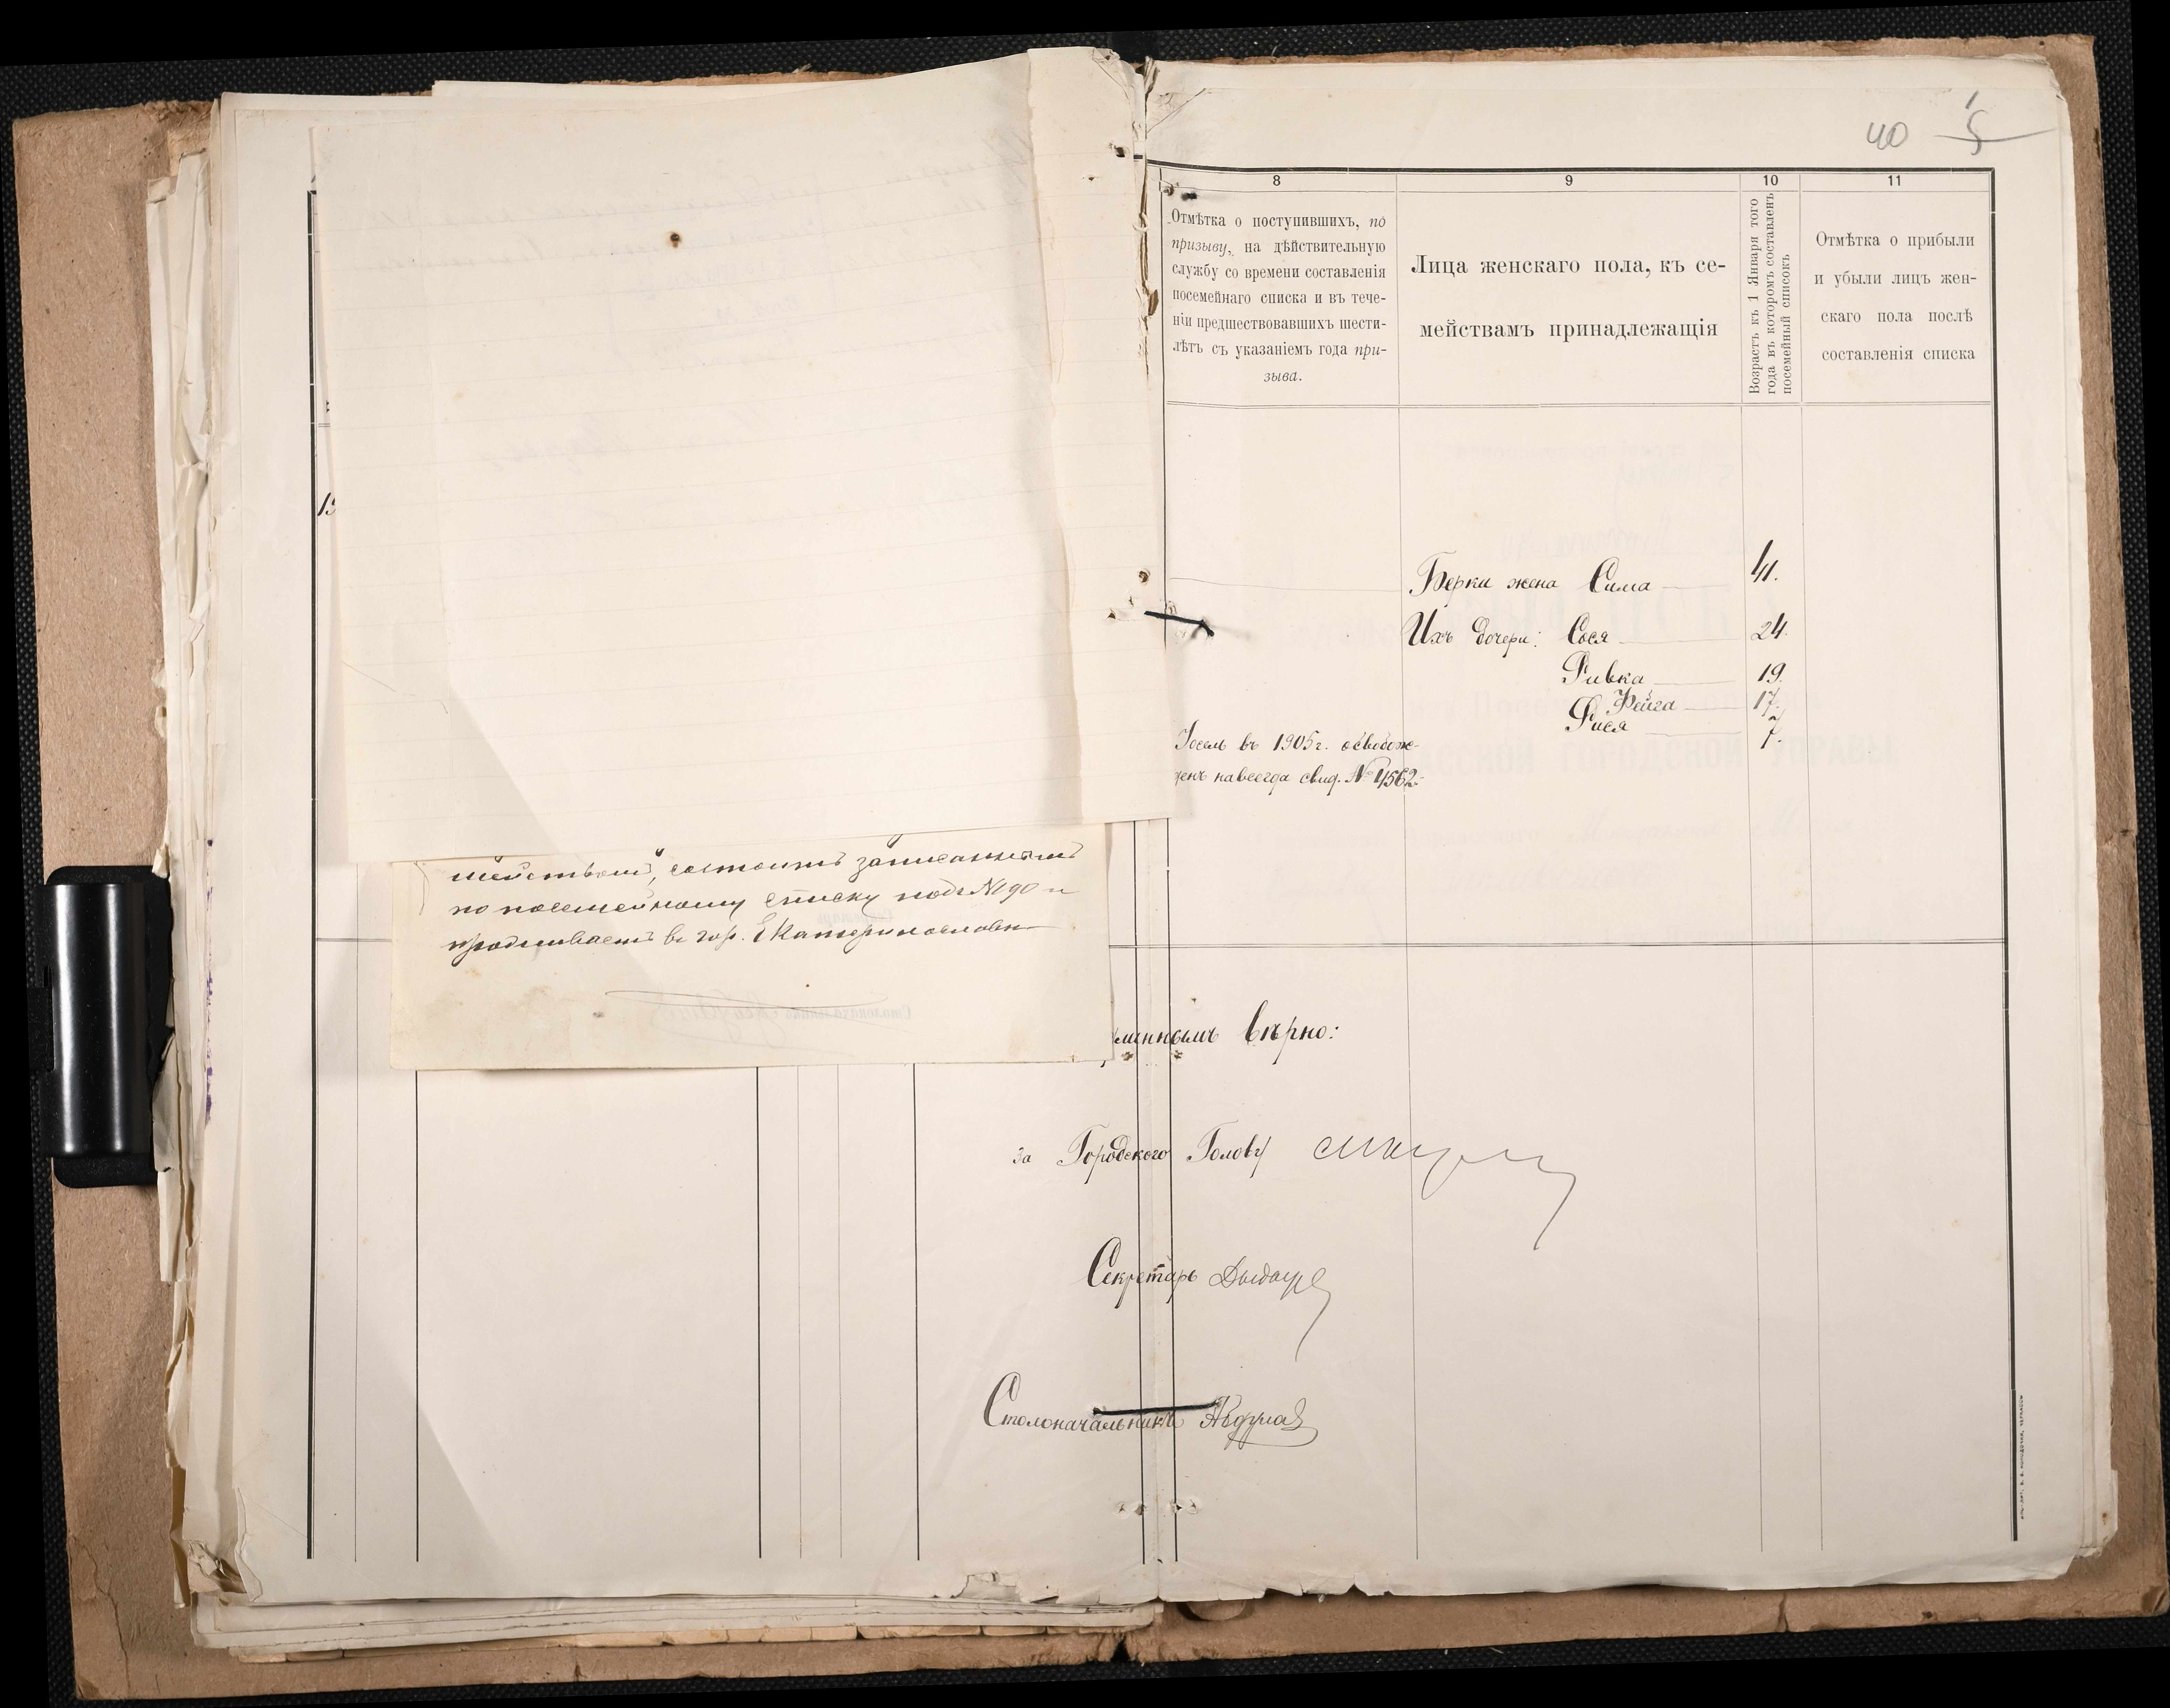 40 5
8
9
10
11
Отмѣтка о поступившихъ, по
призыву, на дѣйствительную
службу со времени составленія
посемейнаго списка и въ тече-
ніи предшествовавшихъ шести-
лѣтъ съ указаніемъ года при-
зыва.
Лица женскаго пола, къ се-
мействамъ принадлежащія
Возрастъ къ 1 Января того
года въ которомъ составленъ
посемейный списокъ
Отмѣтка о прибыли
и убыли лицъ жен-
скаго пола послѣ
составленія списка
Берки жена Сима 41.
Ихъ дочери: Сося 24.
Ривка 19.
Фейга 17.
Рися 7.
Іосель въ 1905 г. освобож-
денъ навсегда свид. № 4562.
мействомъ, состоитъ записаннымъ
по посемейному списку подъ № 190 и
проживаетъ въ гор. Екатеринославѣ
линнымъ вѣрно:
За Городского Голову
Секретарь
Столоначальникъ